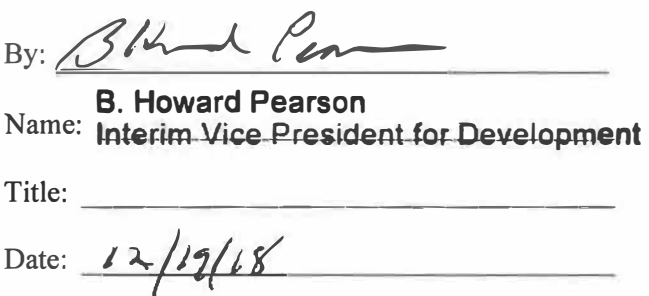 By: B Howard Pearson
B. Howard Pearson
Name: Interim Vice President for Development
Title:
Date: 12/19/18